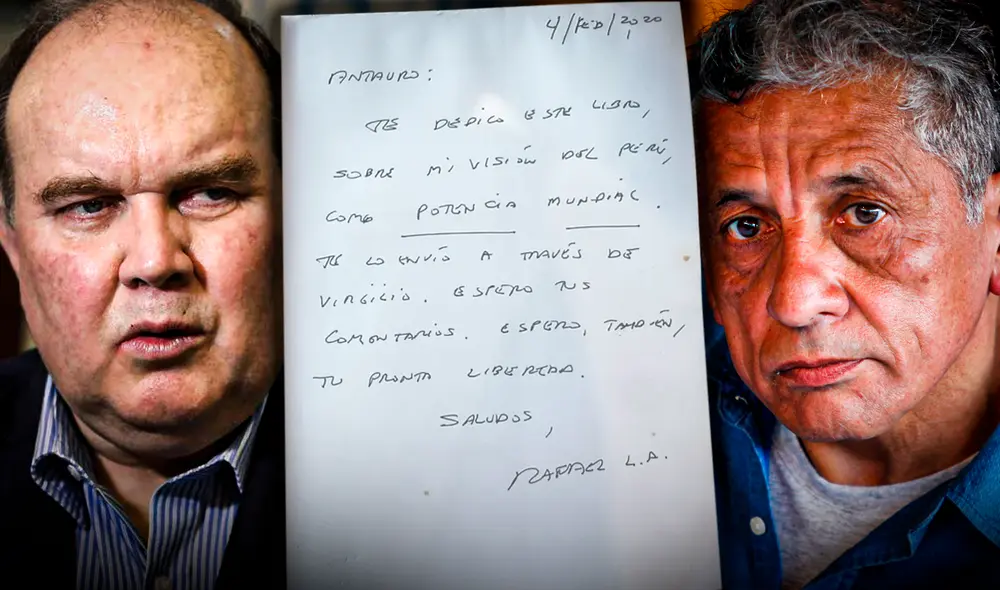 4/FEB/2020
ANTAURO:
TE DEDICO ESTE LIBRO,
SOBRE MI VISIÓN DEL PERÚ,
COMO POTENCIA MUNDIAL.
TE LO ENVÍO A TRAVÉS DE
VIRGILIO. ESPERO TUS
COMONTARIOS. ESPERO, TAMBIÉN,
TU PRONTA LIBERTAD.
SALUDOS,
RAFAEL L.A.